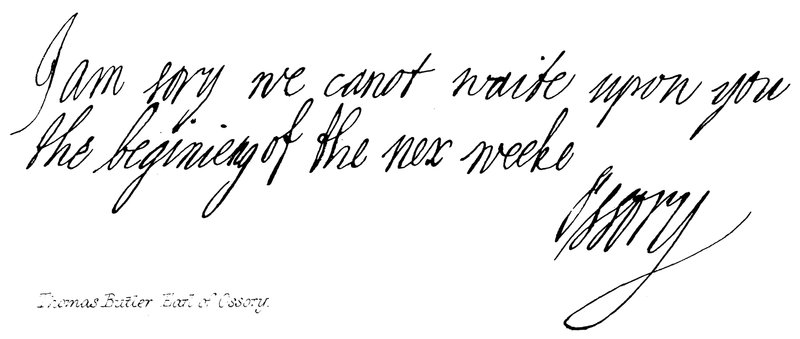 I am sory we canot waite upon you
the beginieng of the nex weeke
Ossory
Thomas Butler Earl of Ossory.